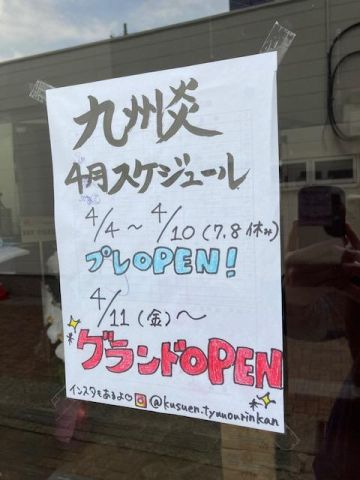 九州炎
4月スケジュール
4/4〜4/10(7,8休み)
プレOPEN!
4/11(金)〜
グランドOPEN
インスタもあるよ♡ @kusuen.tyuuourinkan